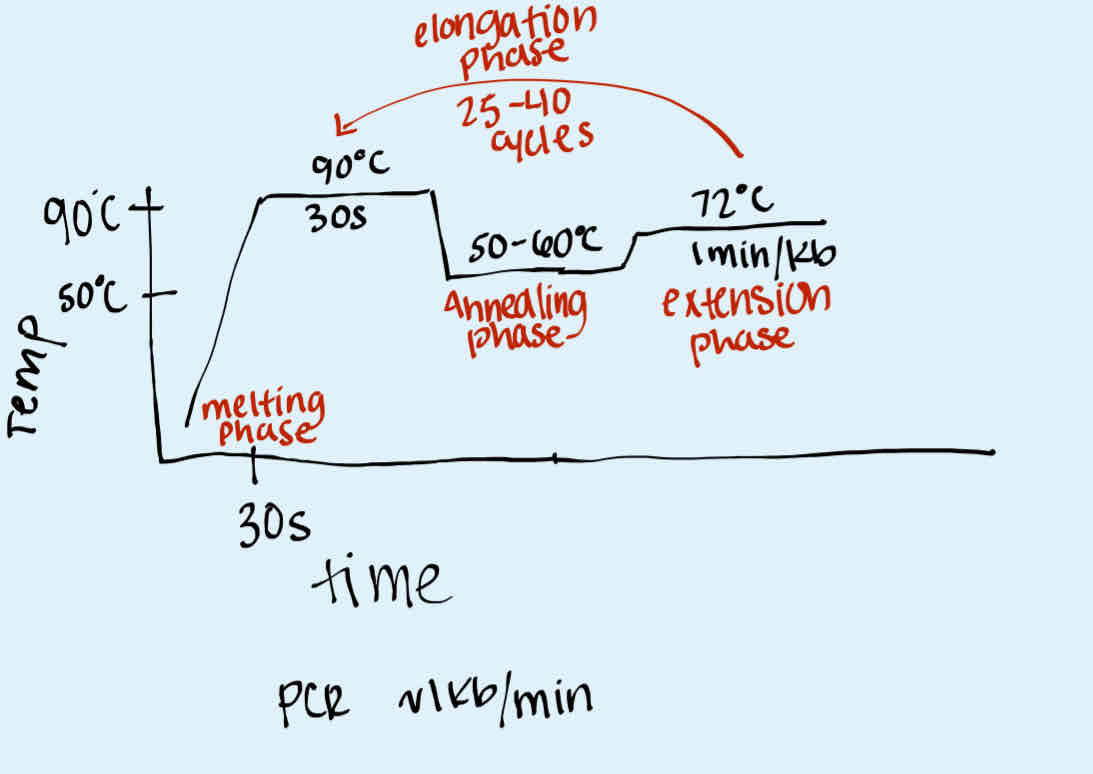 elongation
phase
25-40
cycles
90°C
30s
50-60°C
72°C
1min/kb
90°C
50°C
Annealing
phase
extension
phase
Temp
melting
phase
30s
time
PCR ~1kb/min